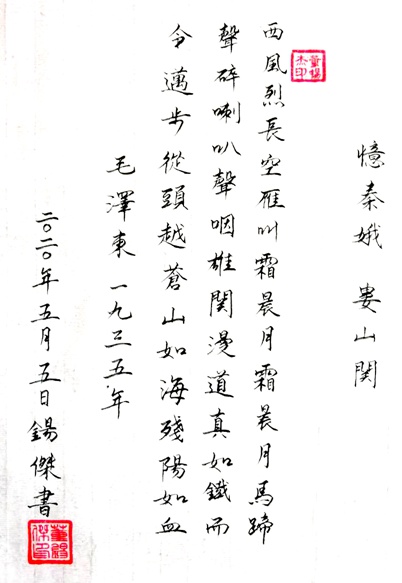 憶秦娥 婁山関
西風烈長空雁叫霜晨月霜晨月馬蹄
聲碎喇叭聲咽雄関漫道真如鐵而
今邁步從頭越蒼山如海殘陽如血
毛澤東一九三五年
二〇二〇年五月五日錫傑書
董錫傑印